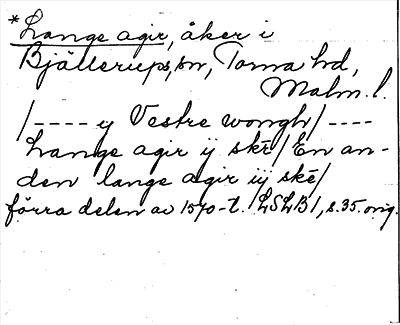 *Lange agir, åker i
Bjällerups sn, Torna hd,
Malm. l.
/---- ij Vestre wongh/----
Lange agir ij skē/En an-
den lange agir iij skē/
förra delen av 1570-t. LSLB1, s.35. orig.